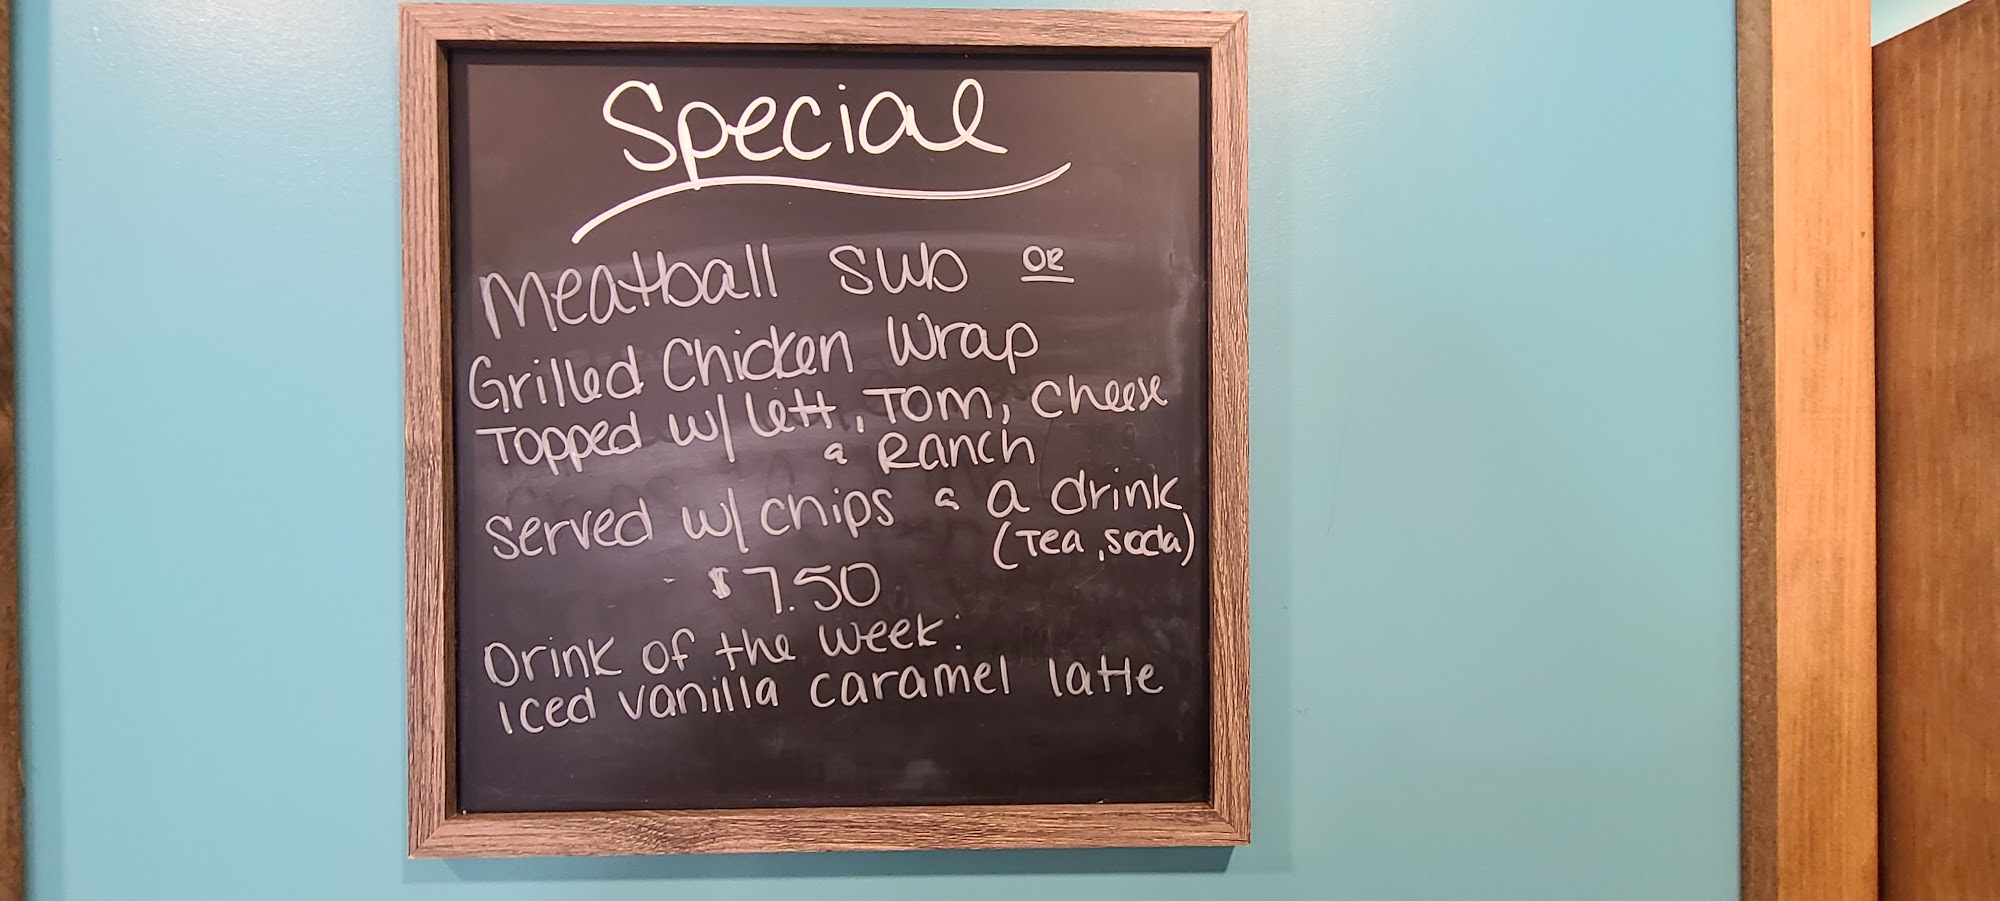 Special
Meatball Sub OR
Grilled Chicken Wrap
Topped w/ Lett, Tom, Cheese
& Ranch
Served w/ chips & a drink
(Tea, soda)
$7.50
Drink of the week:
Iced vanilla caramel latte